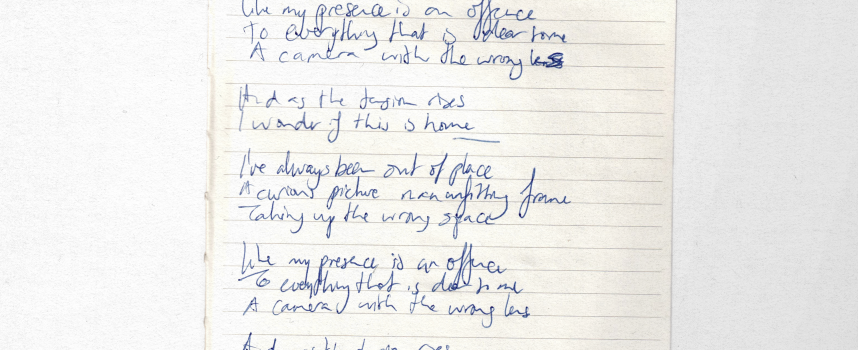 Like my presence is an offence
To everything that is dear to me
A camera with the wrong lens
And as the tension rises
I wonder if this is home
I've always been out of place
A curious picture in an unfitting frame
Taking up the wrong space
Like my presence is an offence
To everything that is dear to me
A camera with the wrong lens
And as the tension rises